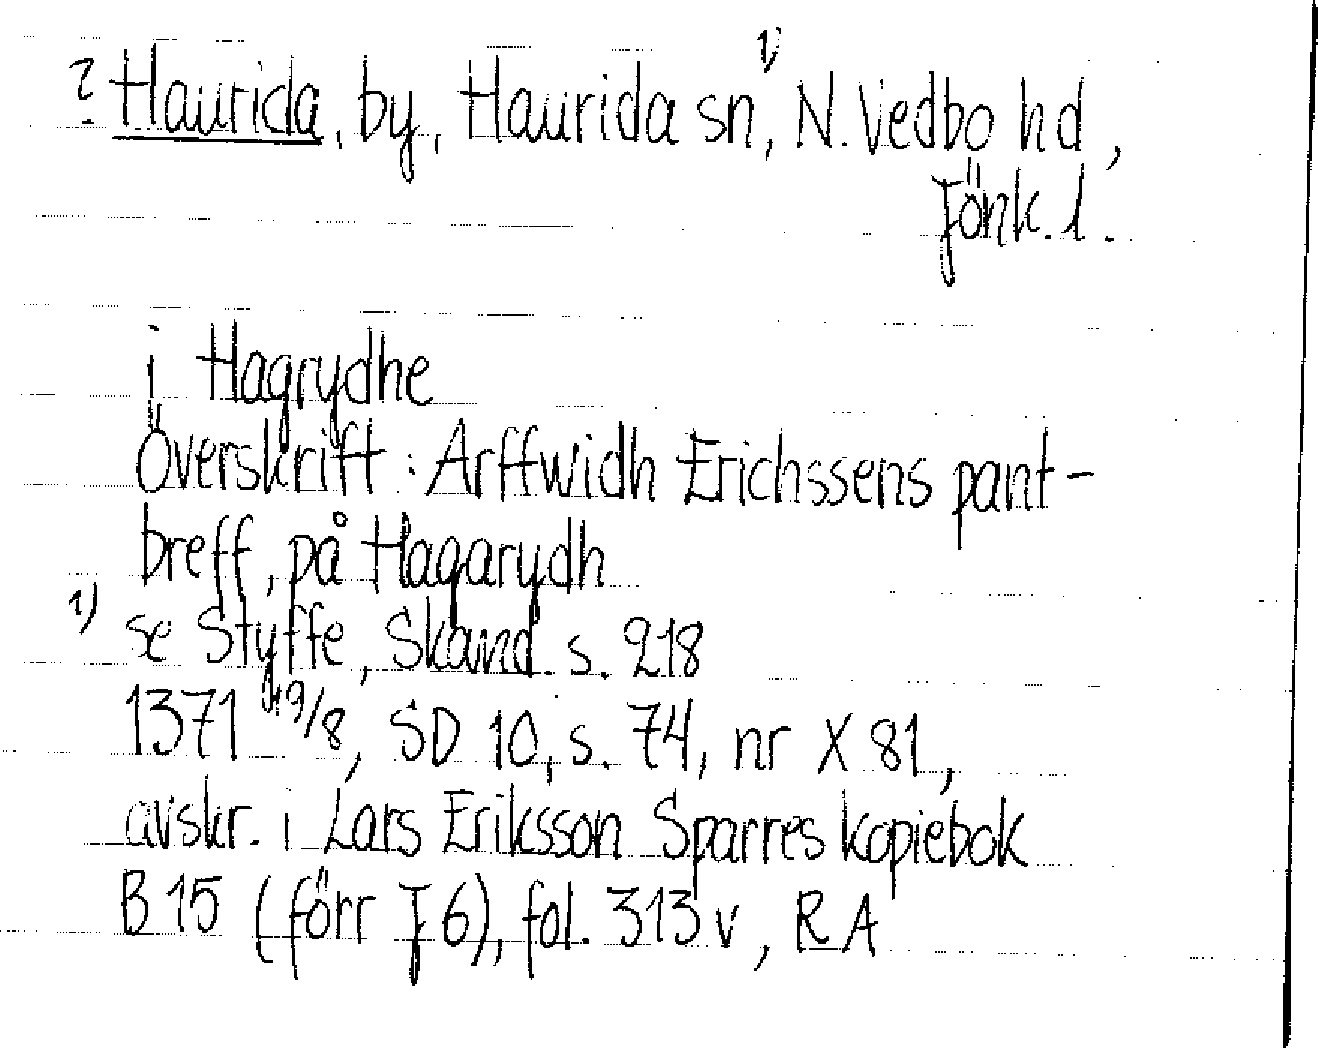 ? Haurida, by, Haurida sn, 1) N. Vedbo hd,
Jönk. l.
i Hagrydhe
Överskrift: Arffwidh Erichssens pant-
breff, på Hagarydh
1) se Styffe, Skand. s. 218
1371 19/8, SD 10, s. 74, nr X 81,
avskr. i Lars Eriksson Sparres kopiebok
B 15 (förr J 6), fol. 313 v, RA